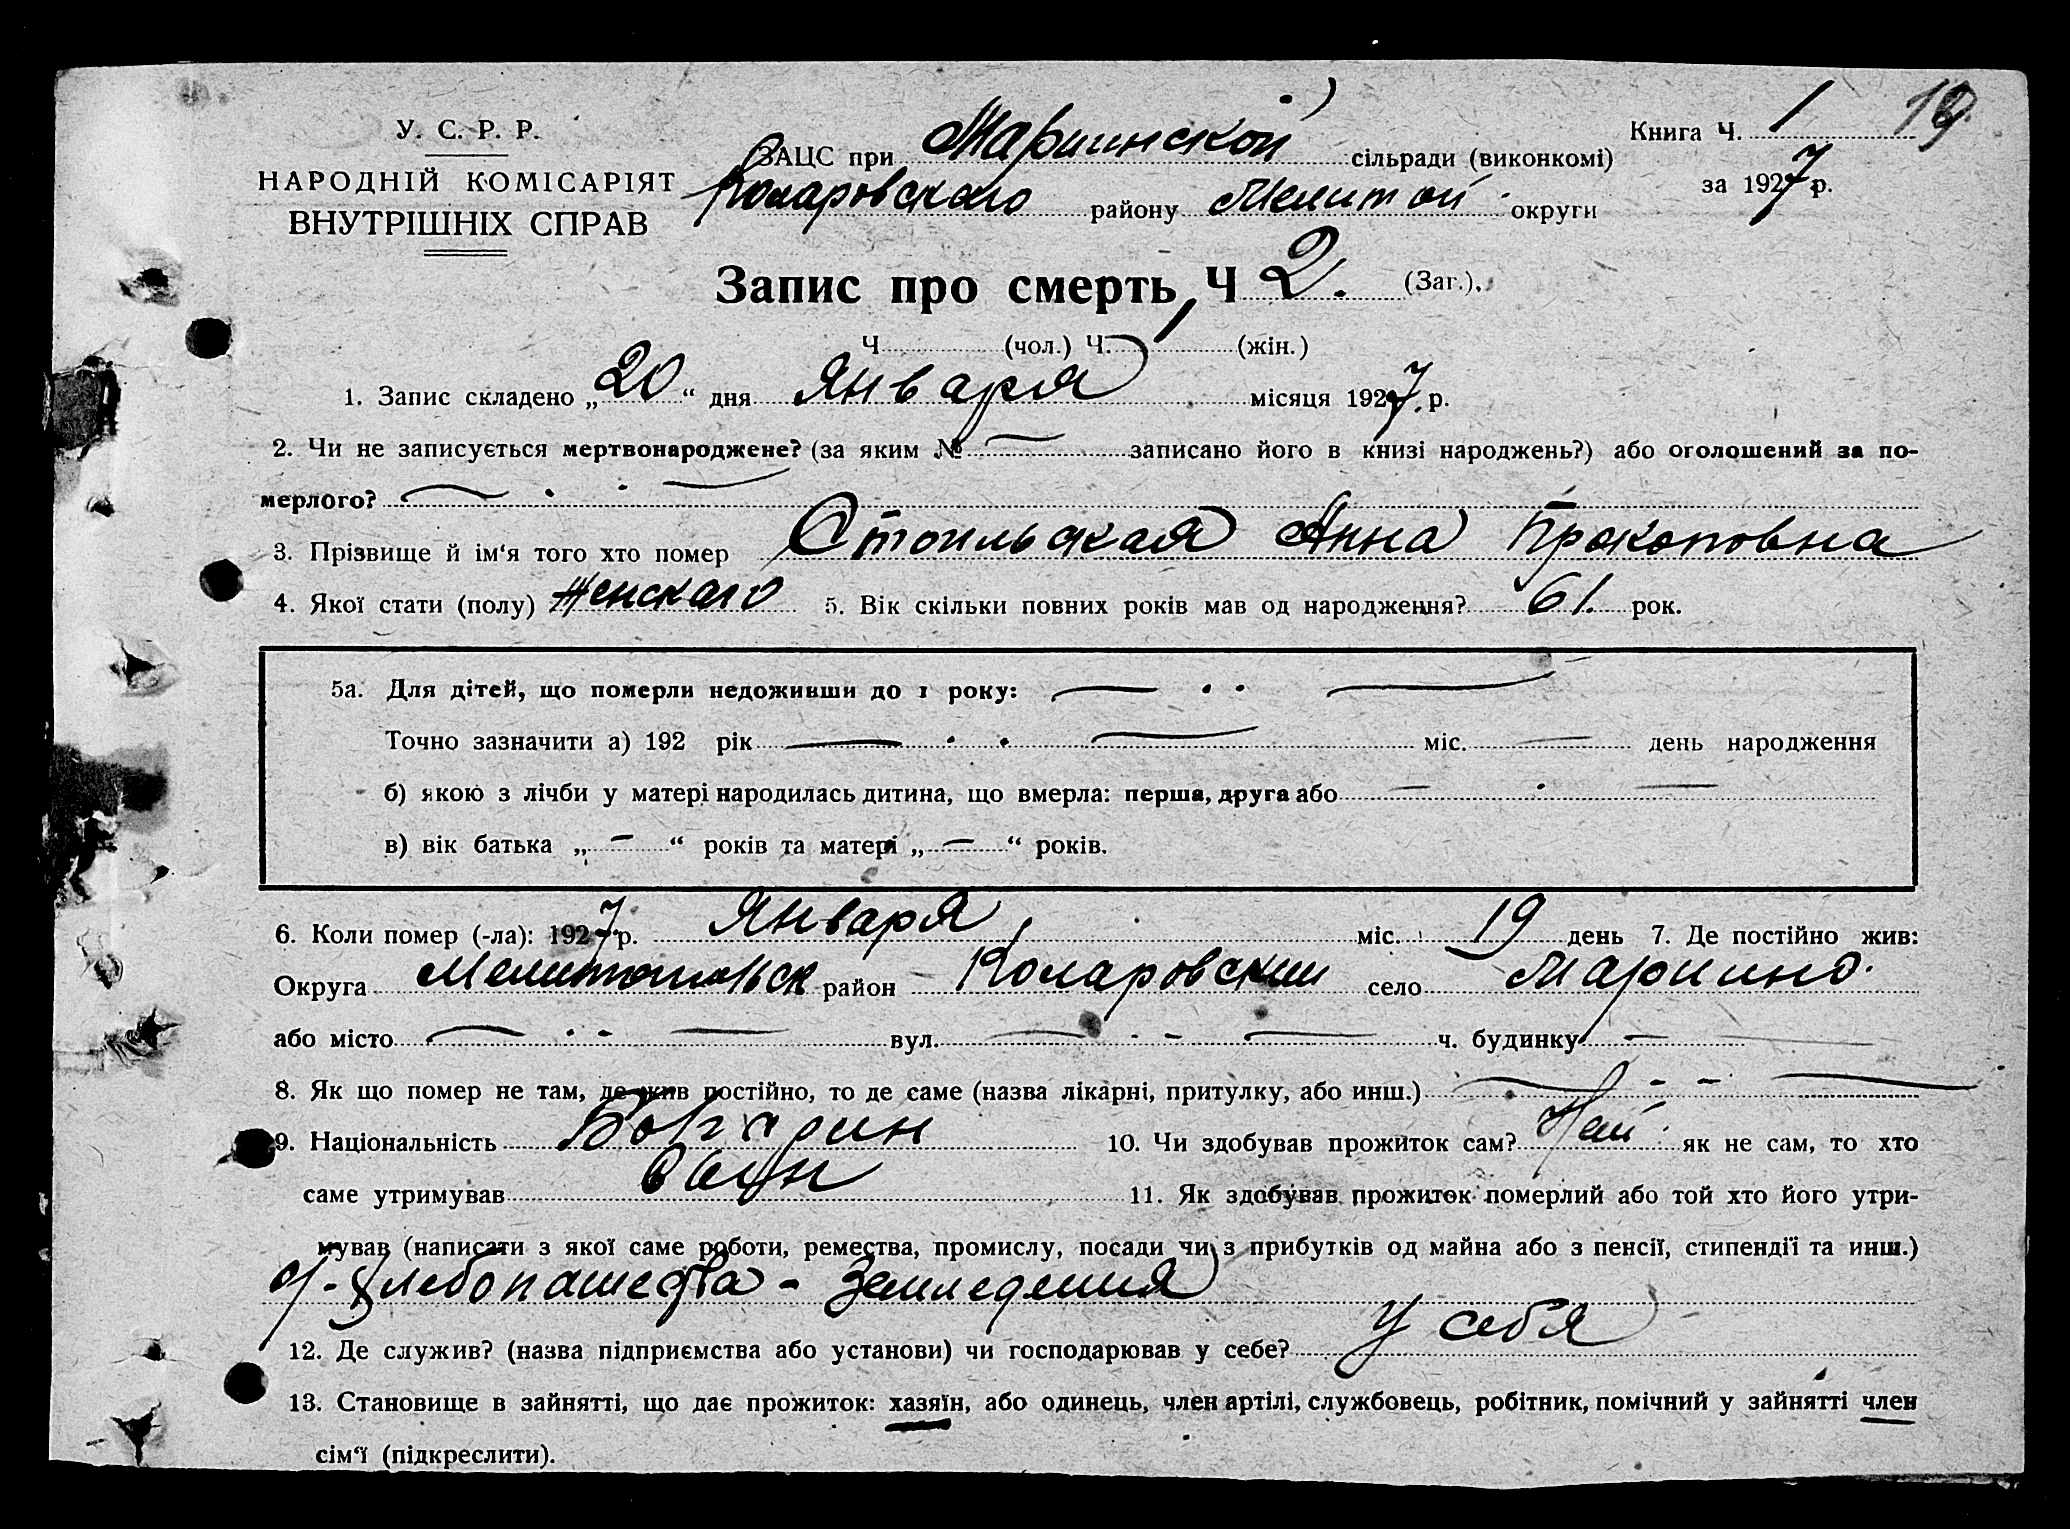 У. С. Р. Р.
НАРОДНІЙ КОМІСАРІЯТ
ВНУТРІШНІХ СПРАВ
Книга Ч. 1 19
ЗАЦС при Мариинской сільради (виконкомі)
за 1927 р.
Коларовского району Мелитоп округи
Запис про смерть Ч 2. (Заг.).
Ч (чол.) Ч. 1 (жін.)
1. Запис складено „ 20 “ дня Января місяця 1927 р.
2. Чи не записується мертвонароджене? (за яким № — записано його в книзі народжень?) або оголошений за по-
мерлого? —
3. Прізвище й ім‘я того хто помер Стоильская Анна Прокоповна
4. Якої стати (полу) Женскаго 5. Вік скільки повних років мав од народження? 61. рок.
5а. Для дітей, що померли недоживши до 1 року: —
Точно зазначити а) 192 рік — міс. — день народження
б) якою з лічби у матері народилась дитина, що вмерла: перша, друга або —
в) вік батька „ — “ років та матері „ — “ років.
6. Коли помер (-ла): 1927 р. Января міс. 19 день 7. Де постійно жив:
Округа Мелитопольск район Коларовский село Мариино.
або місто — вул. — ч. будинку —
8. Як що помер не там, де жив постійно, то де саме (назва лікарні, притулку, або инш.) —
9. Національність Болгарин 10. Чи здобував прожиток сам? як не сам, то хто
саме утримував 11. Як здобував прожиток померлий або той хто його утри-
мував (написати з якої саме роботи, ремества, промислу, посади чи з прибутків од майна або з пенсії, стипендії та инш.)
от Хлебопашества - Земледелия
12. Де служив? (назва підприємства або установи) чи господарював у себе? У себя
13. Становище в зайнятті, що дає прожиток: хазяїн, або одинець, член артілі, службовець, робітник, помічний у зайнятті член
сім‘ї (підкреслити).